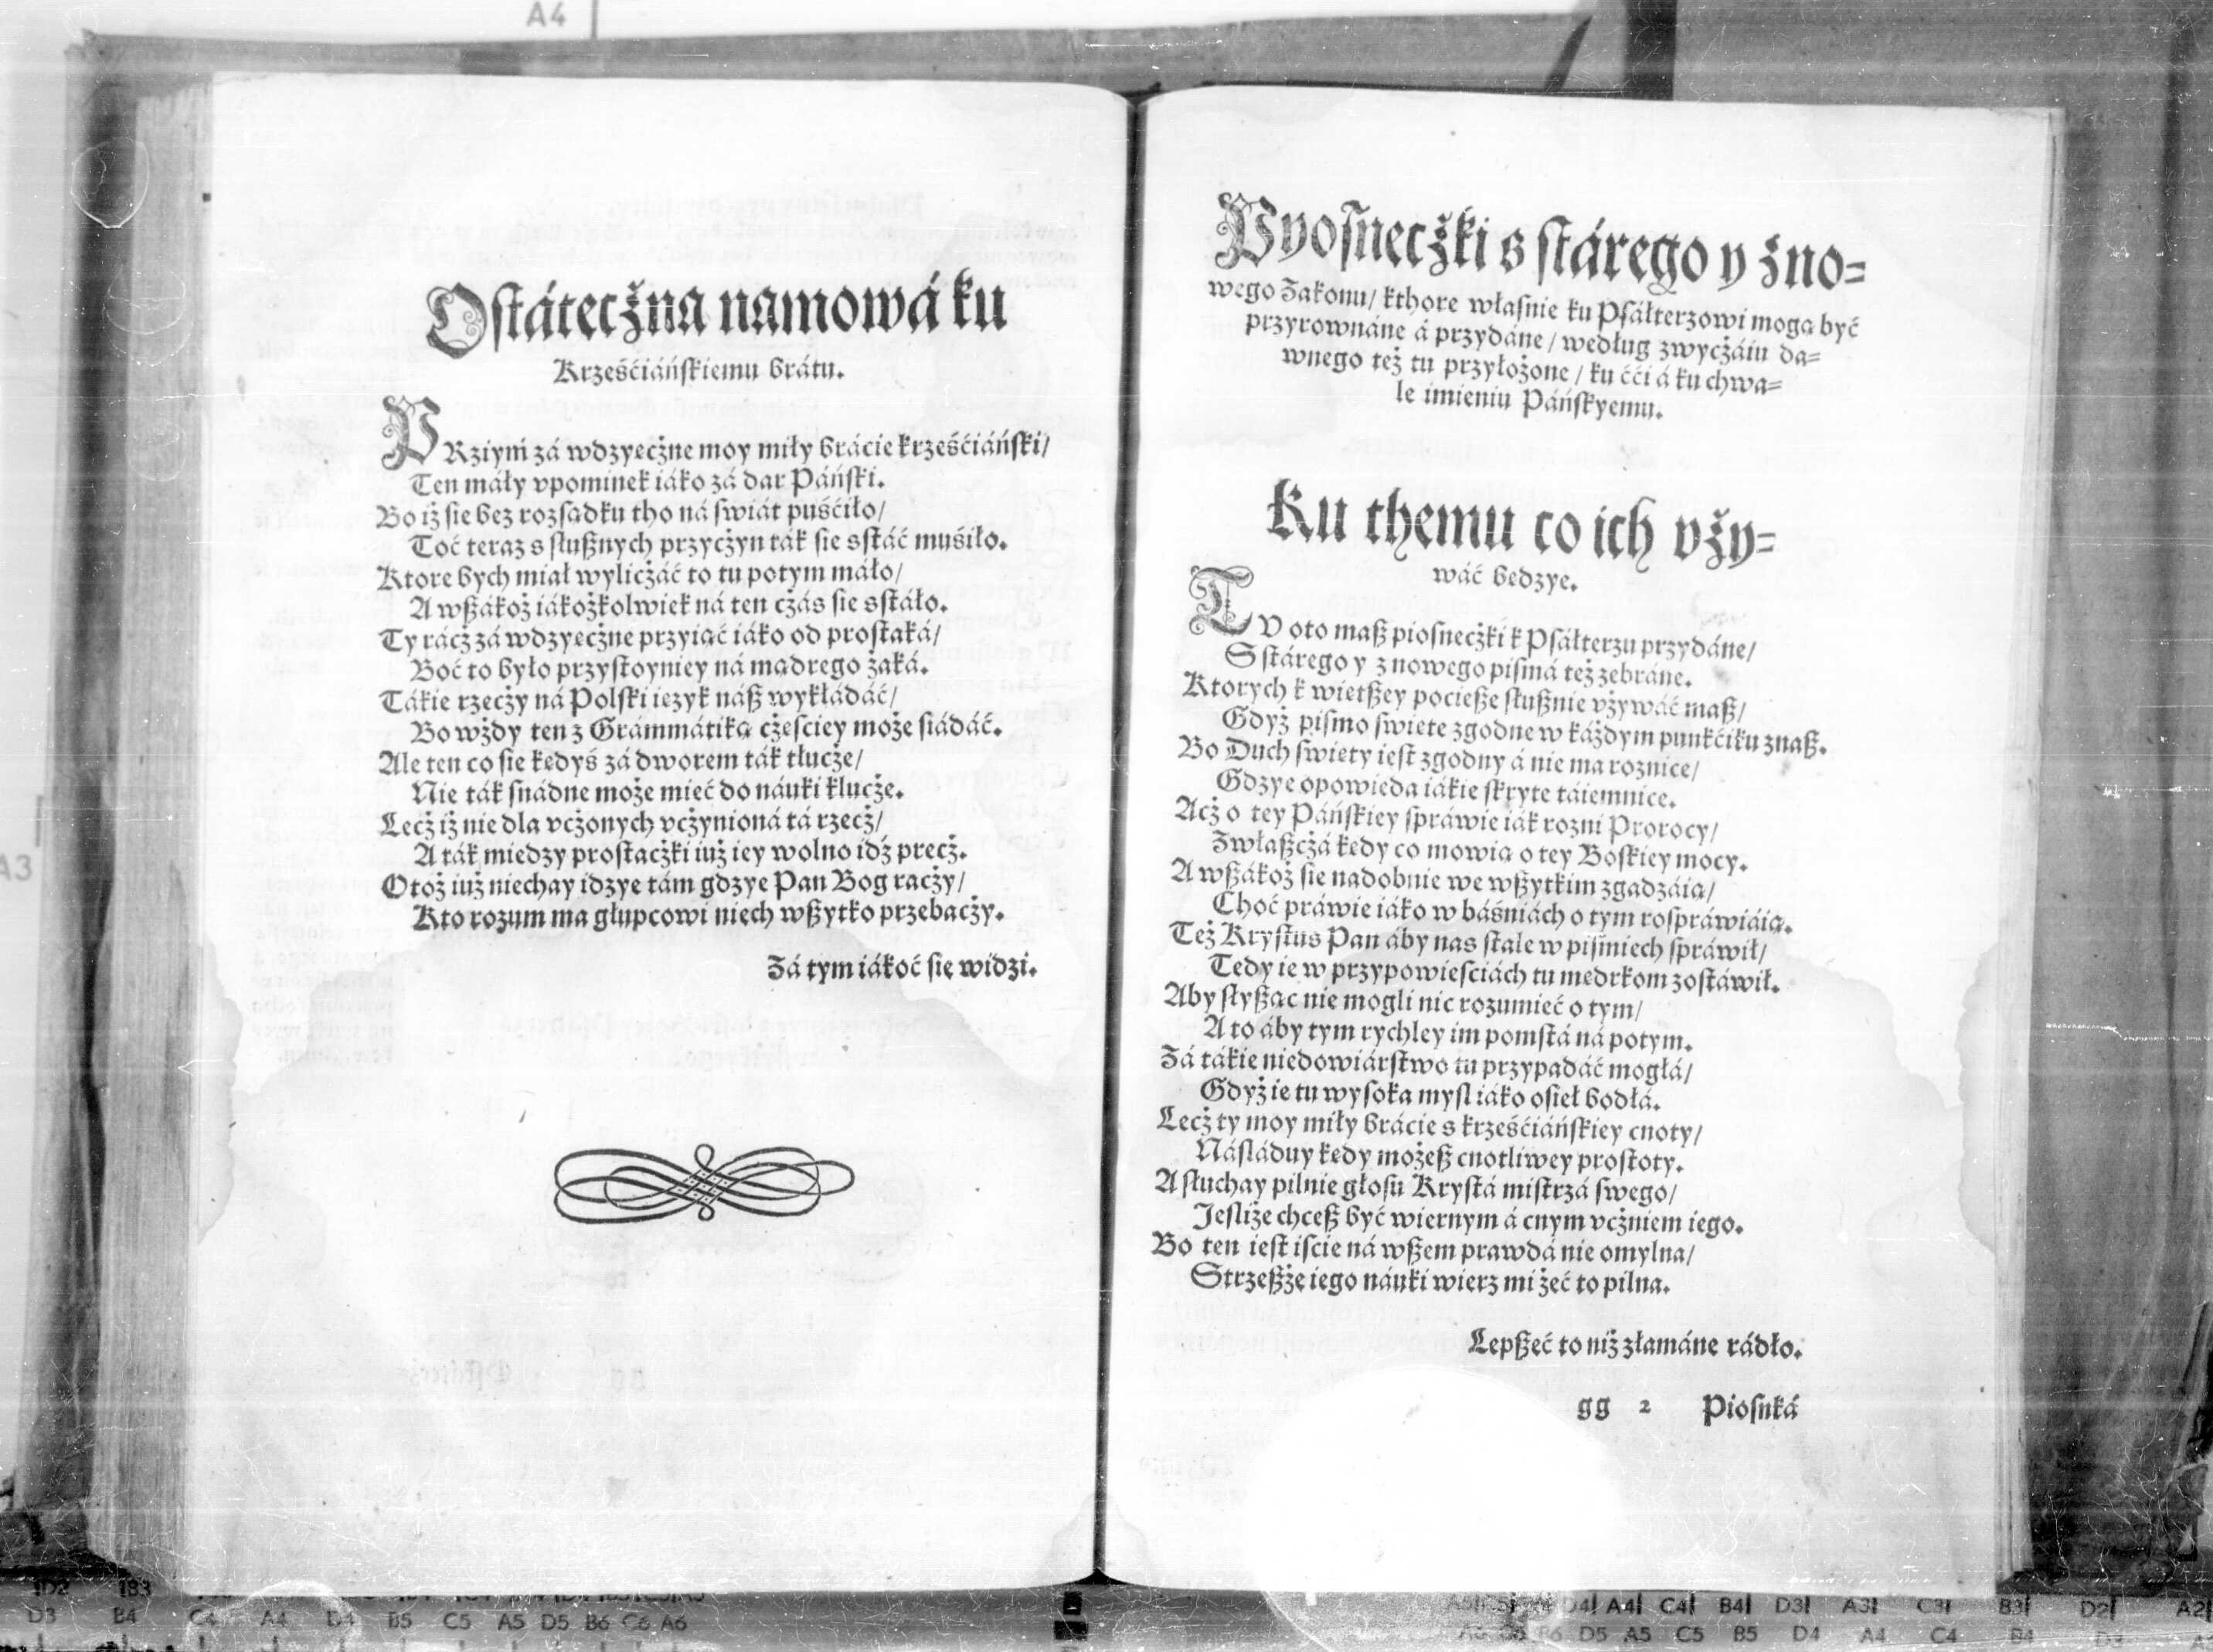 A4
Ostátecżna namowá ku
Krześćiáńskiemu brátu.
PRziym zá wdzyecżne moy miły brácie krześćiáński/
Ten máły vpominek iáko zá dar Páński.
Bo iż sie bez rozsądku tho ná świát puśćiło/
Toć teraz s słußnych przycżyn ták sie sstáć muśiło.
Ktore bych miał wylicżáć to tu potym máło/
A wßákoż iákożkolwiek ná ten cżás sie sstáło.
Ty rácż zá wdzyecżne przyiąć iáko od prostaká/
Boć to było przystoyniey ná mądrego żaká.
Tákie rzecży ná Polski ięzyk náß wykłádáć/
Bo wżdy ten z Grámmátiką cżęsciey może siádáć.
Ale ten co sie kedyś zá dworem ták tłucże/
Nie ták snádne może mieć do náuki klucże.
Lecż iż nie dla vcżonych vcżynioná tá rzecż/
A ták miedzy prostacżki iuż iey wolno idź precż.
Otoż iuż niechay idzye tám gdzye Pan Bog racży/
Kto rozum ma głupcowi niech wßytko przebacży.
Zá tym iákoć się widzi.
Pyosnecżki s stárego y zno⸗
wego Zakonu/ kthore własnie ku Psałterzowi mogą być
przyrownáne á przydáne/ według zwycżáiu da⸗
wnego też tu przyłożone/ ku ćći á ku chwa⸗
le imieniu Páńskyemu.
Ku themu co ich vży⸗
wáć będzye.
TV oto maß piosnecżki k Psáłterzu przydáne/
S stárego y z nowego pismá też zebráne.
Ktorych k więtßey pocieße słußnie vżywáć maß/
Gdyż pismo święte zgodne w káżdym punkćiku znaß.
Bo Duch święty iest zgodny á nie ma roznice/
Gdzye opowieda iákie skryte táiemnice.
Acż o tey Páńskiey spráwie iák rozni Prorocy/
Zwłaßcżá kedy co mowią o tey Boskiey mocy.
A wßákoż sie nadobnie we wßytkim zgadzáią/
Choć práwie iáko w báśniách o tym rospráwiáią.
Też Krystus Pan áby nas stale w pismiech spráwił/
Tedy ie w przypowiesciách tu mędrkom zostáwił.
Aby słyßąc nie mogli nic rozumieć o tym/
A to áby tym rychley im pomstá ná potym.
Zá tákie niedowiárstwo tu przypadáć mogłá/
Gdyż ie tu wysoka mysl iáko osieł bodłá.
Lecż ty moy miły brácie s krześćiáńskiey cnoty/
Násláduy kedy możeß cnotliwey prostoty.
A słuchay pilnie głosu Krystá mistrzá swego/
Jesliże chceß być wiernym á cnym vcżniem iego.
Bo ten iest iscie ná wßem prawdá nie omylna/
Strzeßże iego náuki wierz mi żeć to pilna.
Lepßeć to niż złamáne rádło.
gg 2 Piosnká
A3
D3 B4 C4 A4 D4 B5 C5 A5 D5 B6 C6 A6
D4 A4 C4 B4 D3 A3 C3 B3 D2 A2
D5 A5 C5 B5 D4 A4 C4 B4